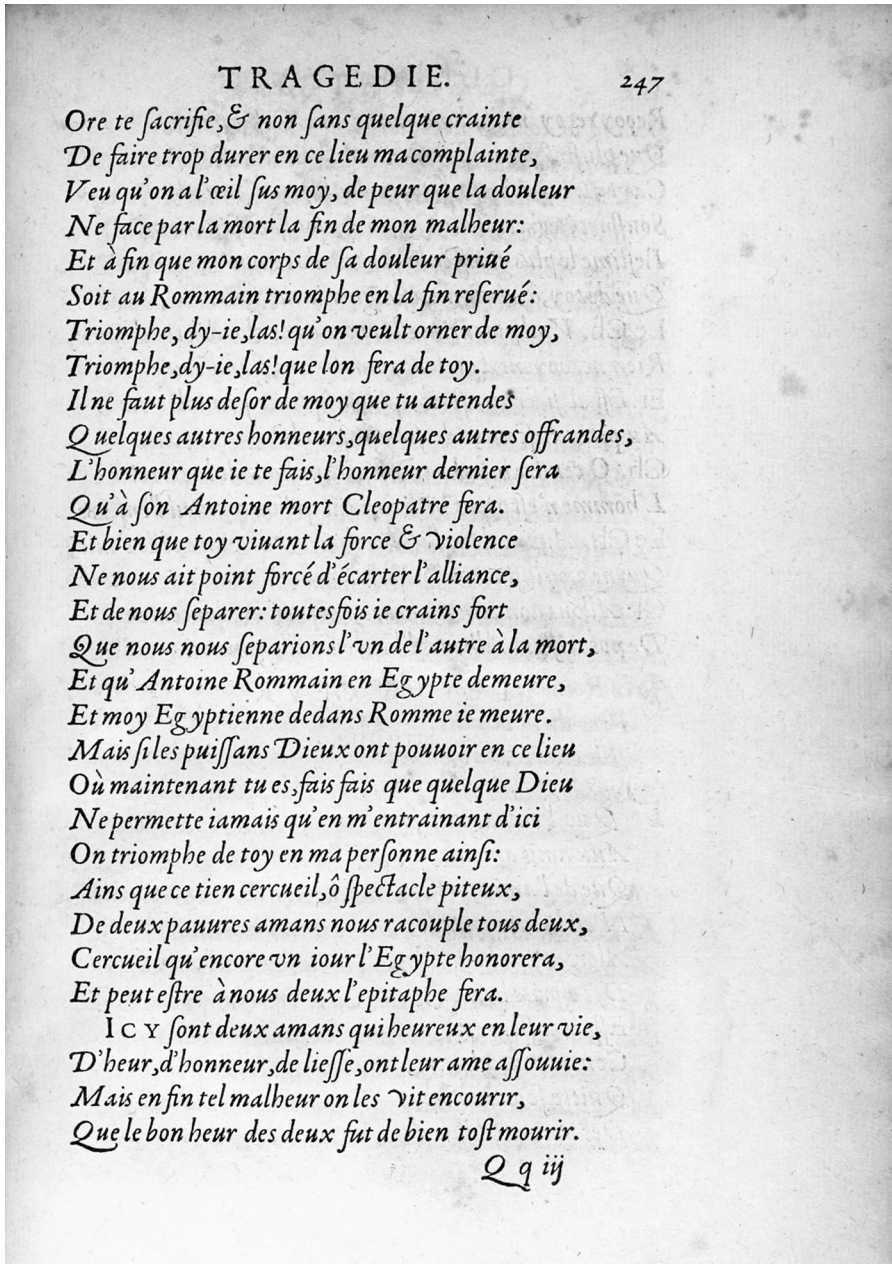 TRAGEDIE. 247
Ore te ſacrifie, & non ſans quelque crainte
De faire trop durer en ce lieu ma complainte,
Veu qu'on a l'œil ſus moy, de peur que la douleur
Ne face par la mort la fin de mon malheur:
Et à fin que mon corps de ſa douleur priué
Soit au Rommain triomphe en la fin reſerué:
Triomphe, dy-ie, las! qu'on veult orner de moy,
Triomphe, dy-ie, las! que lon fera de toy.
Il ne faut plus deſor de moy que tu attendes
Quelques autres honneurs, quelques autres offrandes,
L'honneur que ie te fais, l'honneur dernier ſera
Qu'à ſon Antoine mort Cleopatre fera.
Et bien que toy viuant la force & violence
Ne nous ait point forcé d'écarter l'alliance,
Et de nous ſeparer: toutesfois ie crains fort
Que nous nous ſeparions l'vn de l'autre à la mort,
Et qu'Antoine Rommain en Egypte demeure,
Et moy Egyptienne dedans Romme ie meure.
Mais ſi les puiſſans Dieux ont pouuoir en ce lieu
Où maintenant tu es, fais fais que quelque Dieu
Ne permette iamais qu'en m'entrainant d'ici
On triomphe de toy en ma perſonne ainſi:
Ains que ce tien cercueil, ô ſpectacle piteux,
De deux pauures amans nous racouple tous deux,
Cercueil qu'encore vn iour l'Egypte honorera,
Et peut eſtre à nous deux l'epitaphe ſera.
ICY ſont deux amans qui heureux en leur vie,
D'heur, d'honneur, de lieſſe, ont leur ame aſſouuie:
Mais en fin tel malheur on les vit encourir,
Que le bon heur des deux fut de bien toſt mourir.
Qq iij